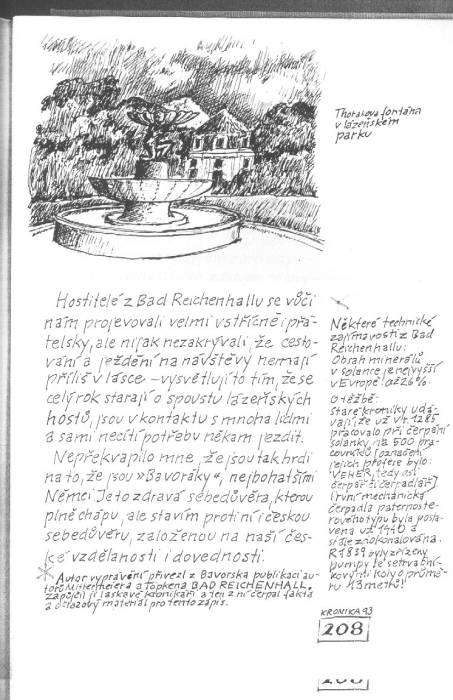 Thorakova fontána
v lázeňském
parku
Hostitelé z Bad Reichenhallu se vůči
nám projevovali velmi vstřícně i přá-
telsky, ale nijak nezakrývali, že cesto-
vání a ježdění na návštěvy nemají
příliš v lásce – vysvětlují to tím, že se
celý rok starají o spoustu lázeňských
hostů, jsou v kontaktu s mnoha lidmi
a sami necítí potřebu někam jezdit.
Nepřekvapilo mne, že jsou tak hrdi
na to, že jsou »Bavoráky«, nejbohatšími
Němci. Je to zdravá sebedůvěra, kterou
plně chápu, ale stavím proti ní i českou
sebedůvěru, založenou na naší čes-
ké vzdělanosti i dovednosti.
Autor vyprávění přivezl z Bavorska publikaci au-
torů a BAD REICHENHALL,
zapůjčil ji laskavě kronikáři a ten z ní čerpal fakta
a obrazový materiál pro tento zápis.
Některé technické
zajímavosti z Bad
Reichenhallu:
Obsah minerálů
v solance je nejvyšší
v Evropě: až 26%.
O těžbě:
Staré kroniky udá-
vají, že už v r. 1285
pracovalo při čerpání
solanky na 500 pra-
covníků (označení
jejich profese bylo:
VEHER, tedy asi
čerpář či čerpadlář)
První mechanická
čerpadla paternoste-
rového typu byla posta-
vena už 1440 a
stále zdokonalována.
R 1839 byly zřízeny
pumpy se setrvační-
kovými koly o průmě-
ru 13 metrů!
KRONIKA 93
208
208